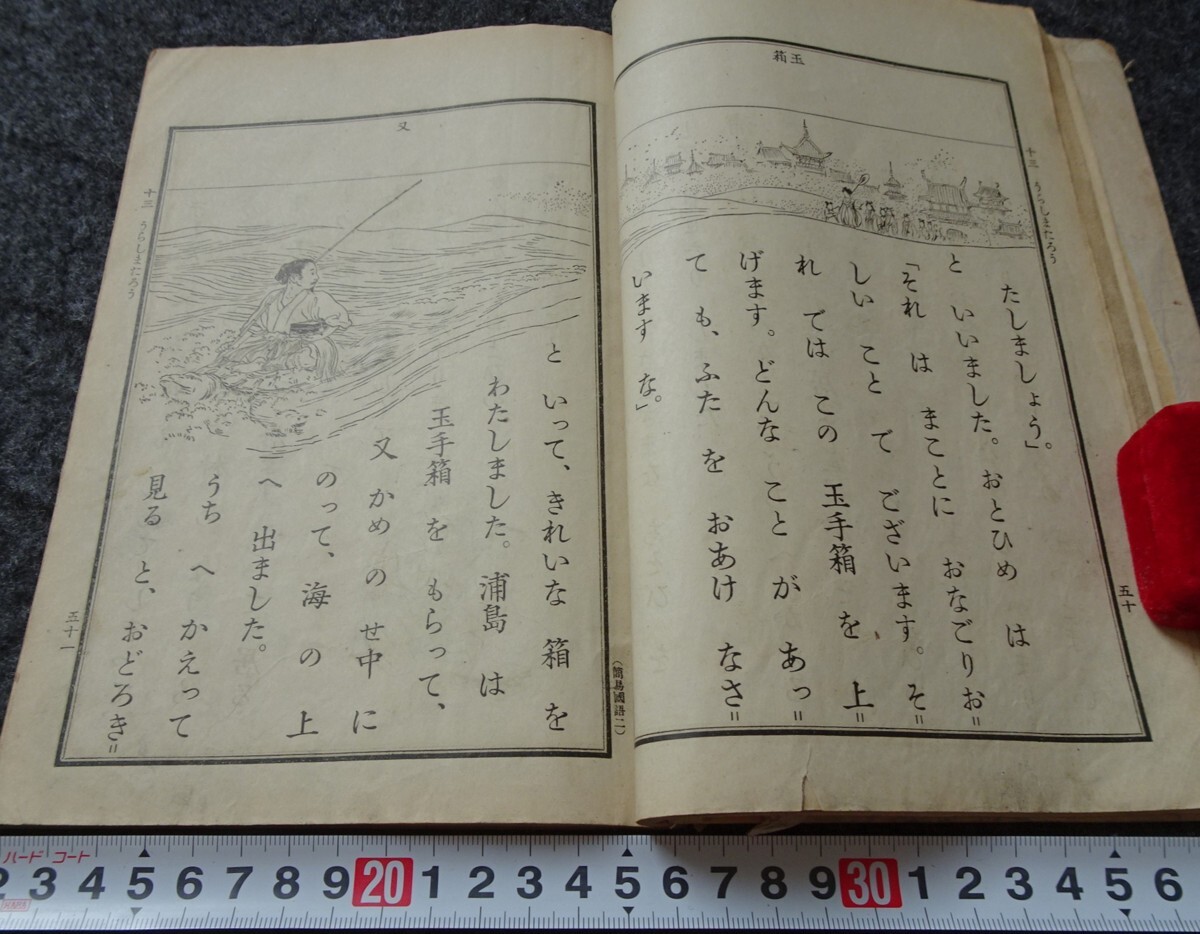 玉箱
十三 うらしまたろう
たしましょう」。
と いいました。おとひめ は
「それ は まことに おなごりお=
しい こと で ございます。そ=
れ では この 玉手箱 を 上=
げます。どんな こと が あっ=
て も、ふた を おあけ なさ=
います な。」
五十
(簡易國語二)
又
と いって、きれいな 箱 を
わたしました。浦島 は
玉手箱 を もらって、
又 かめ の せ中 に
のって、海 の 上
へ 出ました。
うち へ かえって
見る と、おどろき=
十三 うらしまたろう
五十一
ハード コート
2 3 4 5 6 7 8 9 20 1 2 3 4 5 6 7 8 9 30 1 2 3 4 5 6